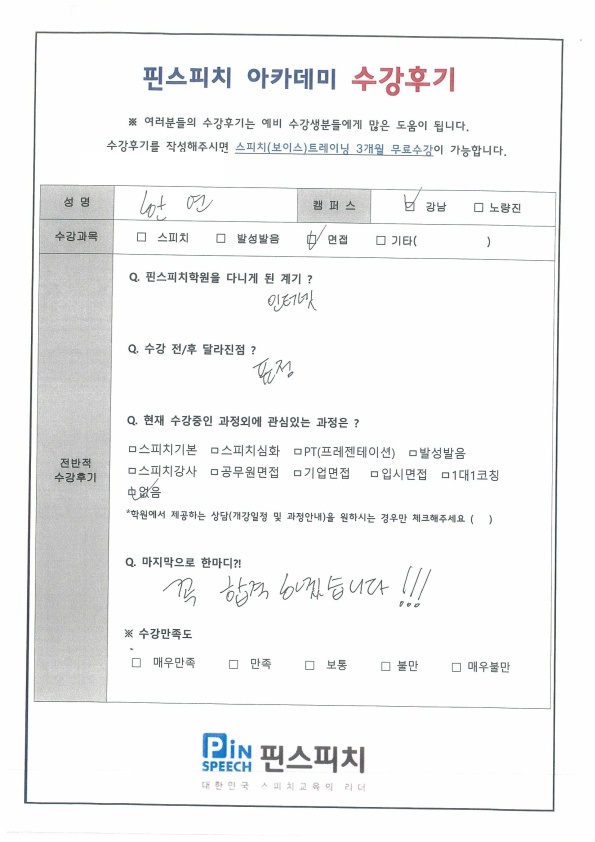 핀스피치 아카데미 수강후기
※ 여러분들의 수강후기는 예비 수강생분들에게 많은 도움이 됩니다.
수강후기를 작성해주시면 스피치(보이스)트레이닝 3개월 무료수강이 가능합니다.
성 명 안 연 캠 퍼 스 ☑ 강남 □ 노량진
수강과목 □ 스피치 □ 발성발음 ☑ 면접 □ 기타( )
Q. 핀스피치학원을 다니게 된 계기 ?
인터넷
Q. 수강 전/후 달라진점 ?
표정
Q. 현재 수강중인 과정외에 관심있는 과정은 ?
□스피치기본 □스피치심화 □PT(프레젠테이션) □발성발음
전반적
수강후기
□스피치강사 □공무원면접 □기업면접 □입시면접 □1대1코칭
☑없음
*학원에서 제공하는 상담(개강일정 및 과정안내)을 원하시는 경우만 체크해주세요 ( )
Q. 마지막으로 한마디?!
꼭 합격 하겠습니다 !!!
※ 수강만족도
□ 매우만족 □ 만족 □ 보통 □ 불만 □ 매우불만
PiN
SPEECH 핀스피치
대한민국 스피치교육의 리더